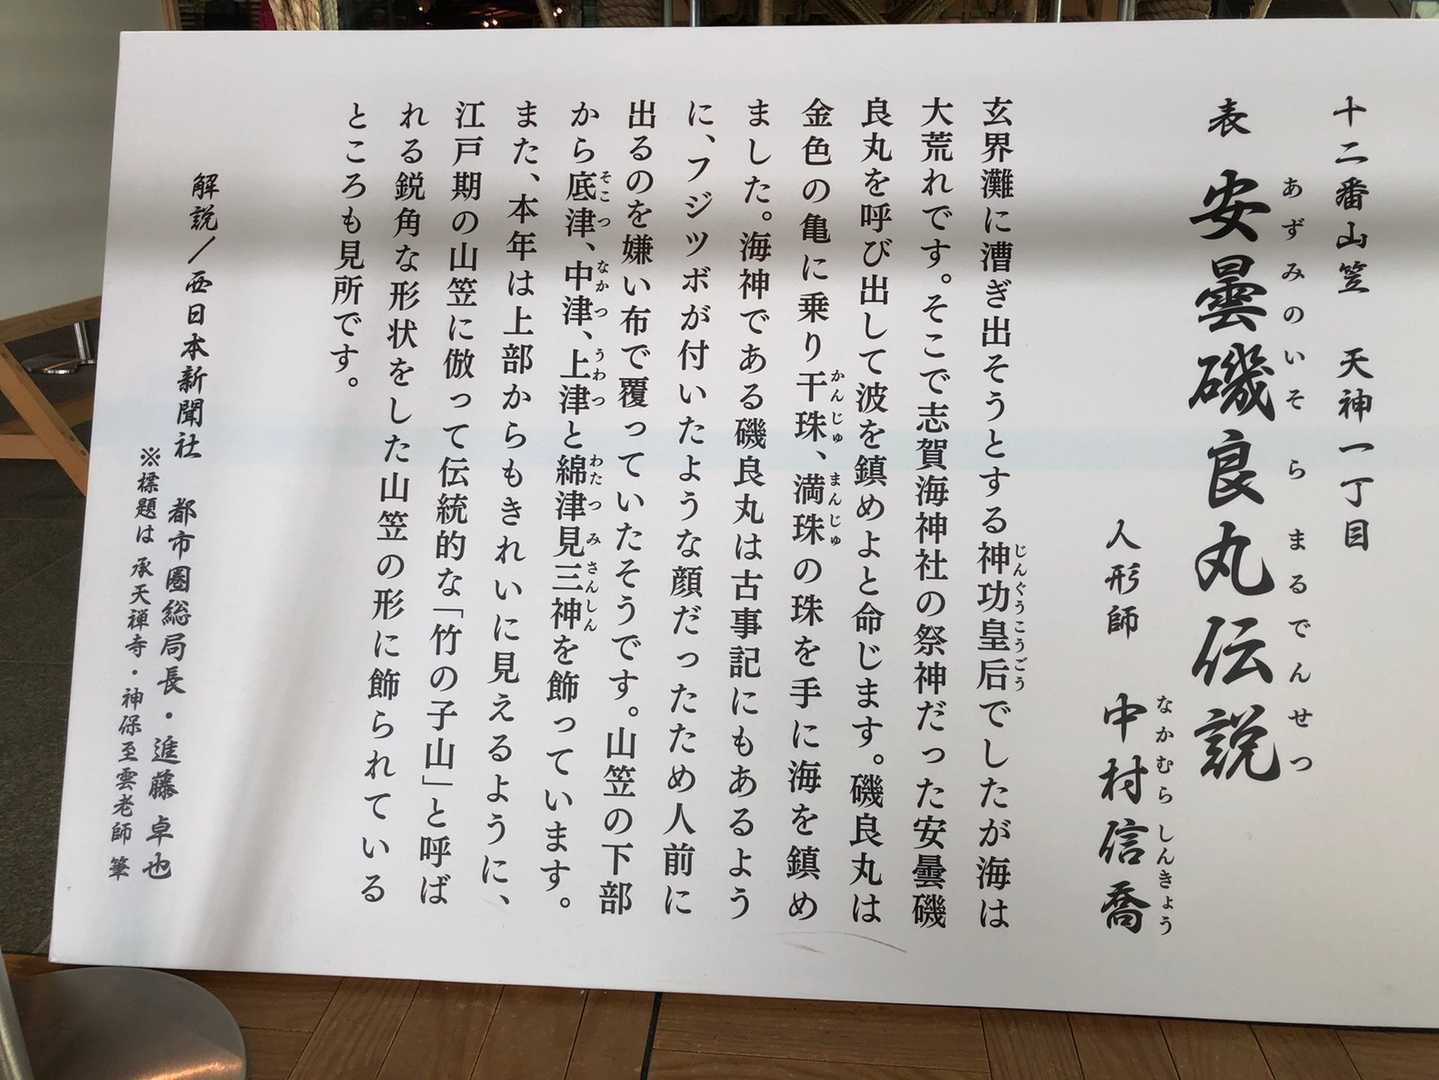 十二番山笠　天神一丁目
表　安曇磯良丸伝説
あずみのいそらまるでんせつ
人形師　中村信喬
なかむらしんきょう
玄界灘に漕ぎ出そうとする神功皇后でしたが海は
じんぐうこうごう
大荒れです。そこで志賀海神社の祭神だった安曇磯
良丸を呼び出して波を鎮めよと命じます。磯良丸は
金色の亀に乗り干珠、満珠の珠を手に海を鎮め
かんじゅ　まんじゅ
ました。海神である磯良丸は古事記にもあるよう
に、フジツボが付いたような顔だったため人前に
出るのを嫌い布で覆っていたそうです。山笠の下部
から底津、中津、上津と綿津見三神を飾っています。
そこつ　なかつ　うわつ　わたつみさんしん
また、本年は上部からもきれいに見えるように、
江戸期の山笠に倣って伝統的な「竹の子山」と呼ば
れる鋭角な形状をした山笠の形に飾られている
ところも見所です。
解説／西日本新聞社　都市圏総局長・進藤卓也
※標題は　承天禅寺・神保至雲老師　筆